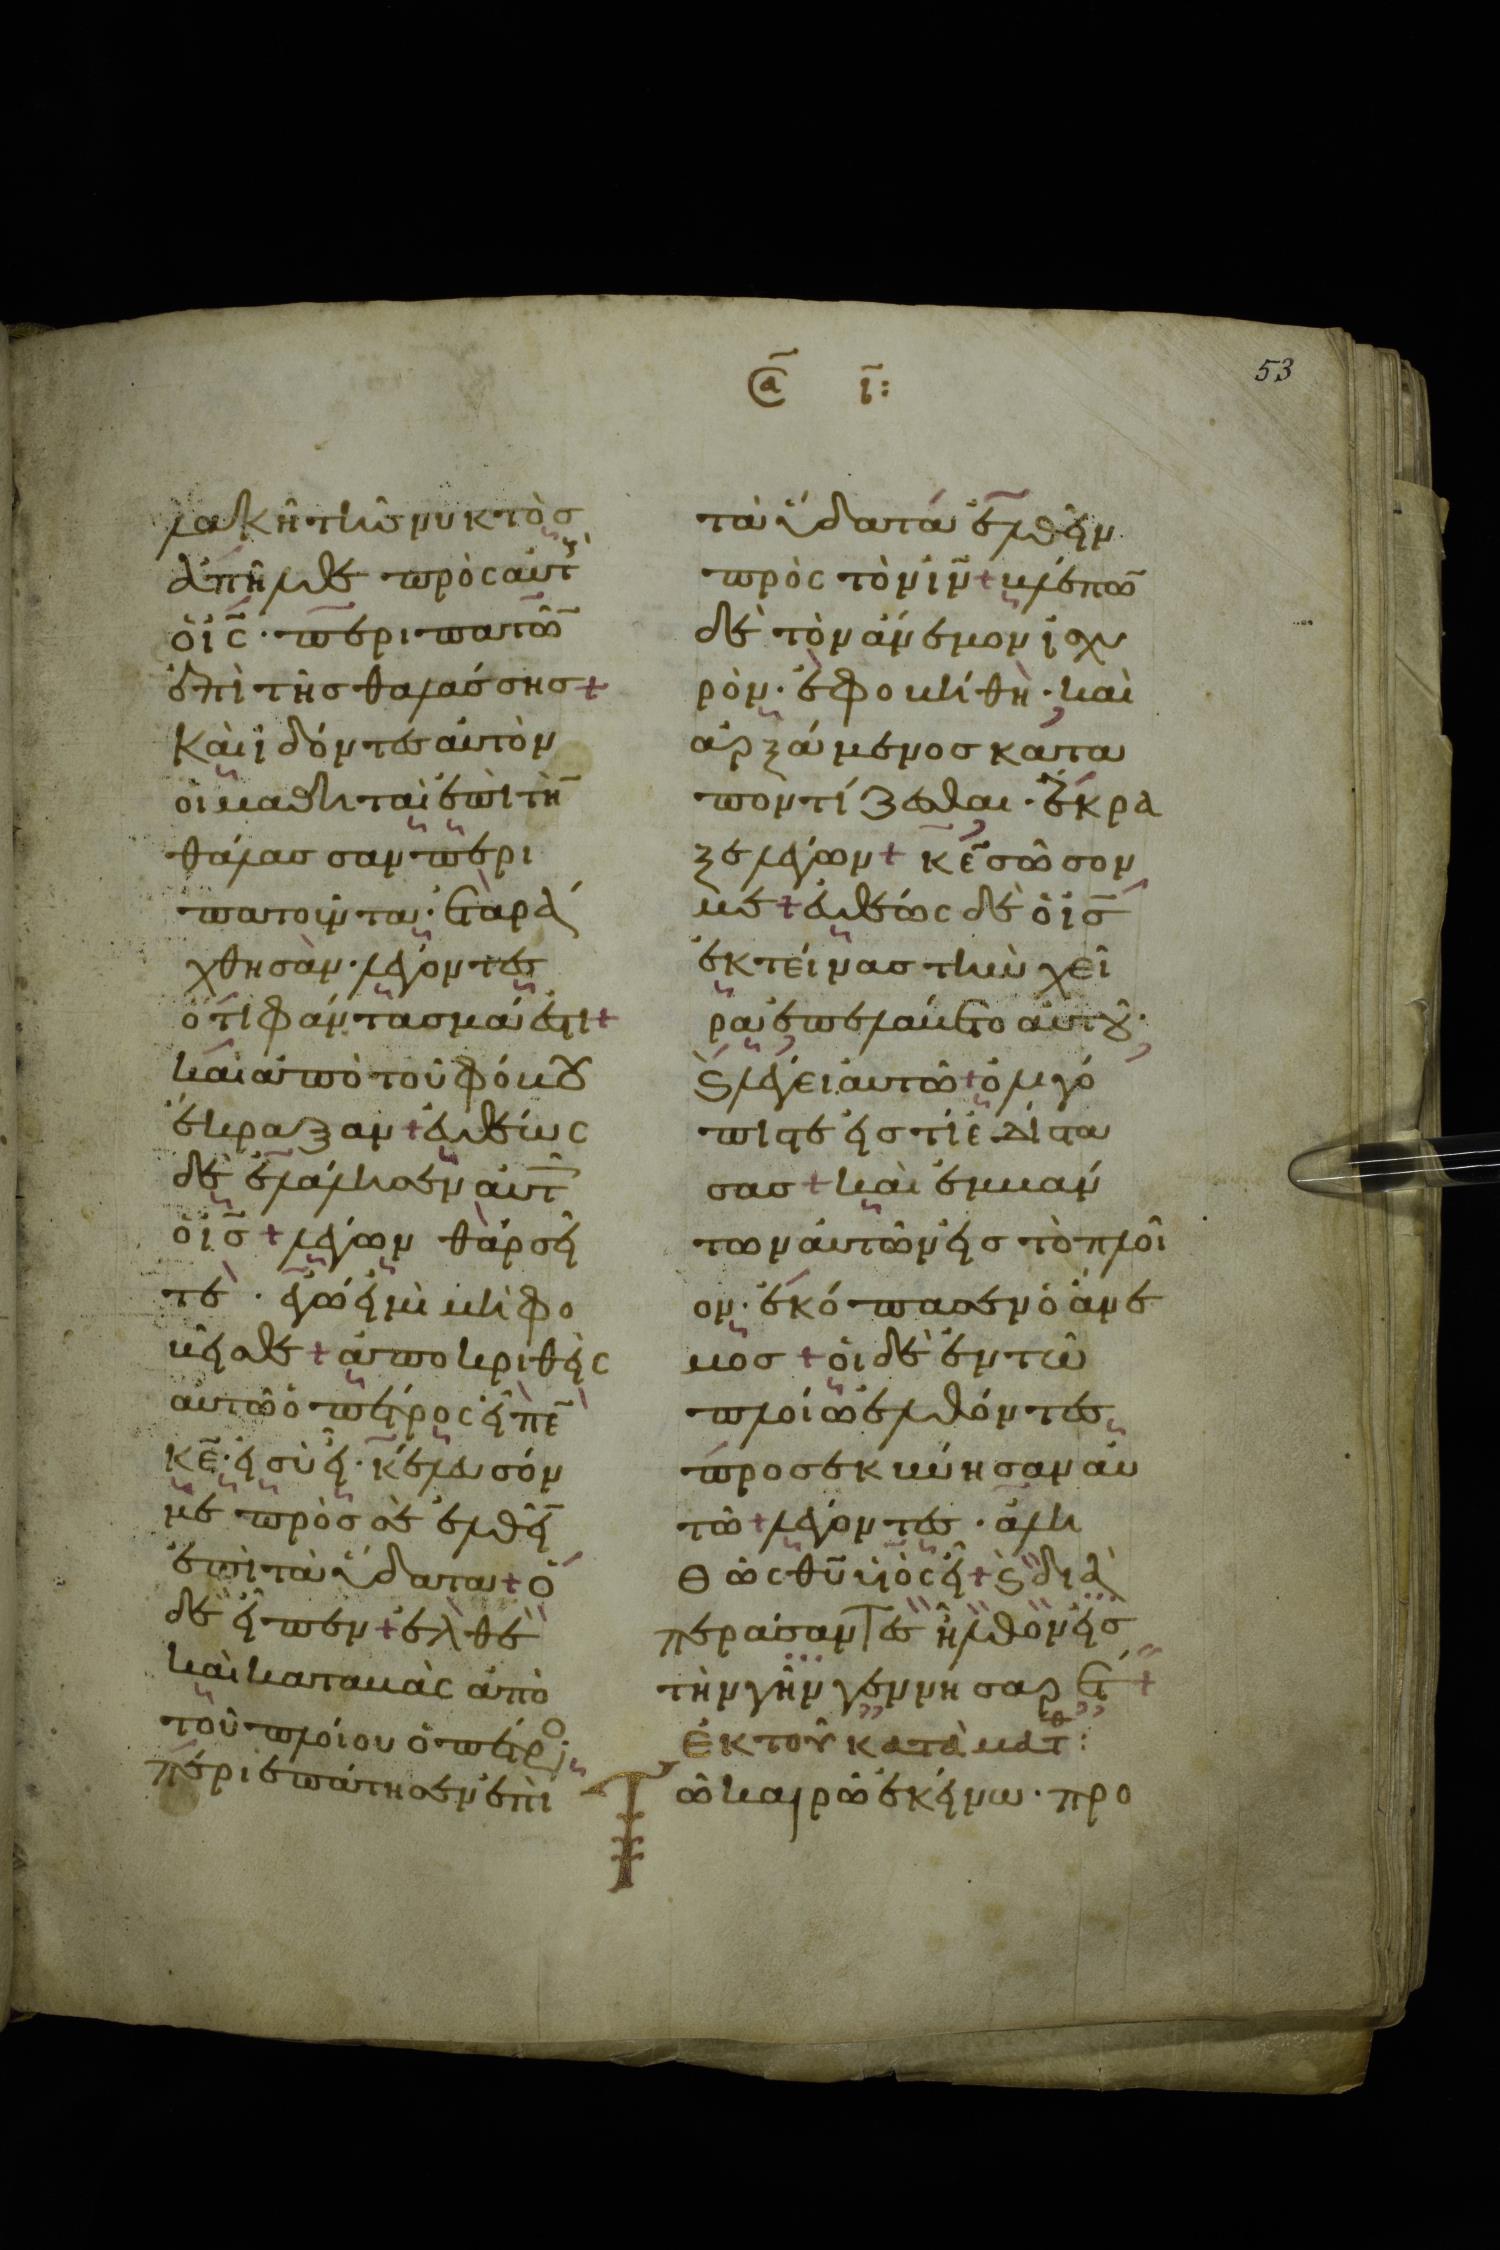 κ̅α̅ ι̅:
53
λακῆ τῆς νυκτὸς
ἀπῆλθε πρὸς αὐτ
ὁ ι̅ς̅· περιπατῶ̅
ἐπὶ τῆς θαλάσσης +
καὶ ἰδόντες αὐτὸν
οἱ μαθηταὶ ἐπὶ τὴ̅
θάλασσαν περι
πατοῦντα· ἐταρά
χθησαν· λέγοντες
ὅτι φάντασμά ἐστι +
καὶ ἀπὸ τοῦ φόβου
ἔκραξαν + εὐθέως
δὲ ἐλάλησεν αὐτ
ὁ ι̅ς̅ + λέγων θαρσεῖ
τε· ἐγώ εἰμι μὴ φο
βεῖσθε + ἀποκριθεὶς
αὐτῶ ὁ πέτρος εἶπε̅
κ̅ε̅· εἰ σὺ εἶ· κέλευσόν
με πρὸς σὲ ἐλθεῖ̅
ἐπὶ τὰ ὕδατα + ὁ
δὲ εἶπεν + ἐλθὲ
καὶ καταβὰς ἀπὸ
τοῦ πλοίου ὁ πέτρο
περιεπάτησεν ἐπὶ
τὰ ὕδατα ἐλθεῖν
πρὸς τὸν ι̅ν̅ + βλέπω̅
δὲ τὸν ἄνεμον ἰσχυ
ρόν· ἐφοβήθη· καὶ
ἀρξάμενος κατα
ποντίζεσθαι· ἔκρα
ξε λέγων + κ̅ε̅ σῶσον
με + εὐθέως δὲ ὁ ι̅ς̅
ἐκτείνας τὴν χεῖ
ρα ἐπελάβετο αὐτοῦ·
ϗ λέγει αὐτῶ + ὀλιγό
πιστε εἰς τί ἐδίστα
σας + καὶ ἐμβάν
των αὐτῶν εἰς τὸ πλοῖ
ον· ἐκόπασεν ὁ ἄνε
μος + οἱ δὲ ἐν τῶ
πλοίω ἐλθόντες
προσεκύνησαν αὐ
τῶ + λέγοντες· ἀλη
θῶς θ̅υ̅ υἱὸς εἶ + ϗ δια
περάσαντες ἦλθον εἰς
τὴν γῆν γεννησαρέτ +
ἐκ τοῦ κατὰ ματθ:
Τῶ καιρῶ ἐκείνω· προ